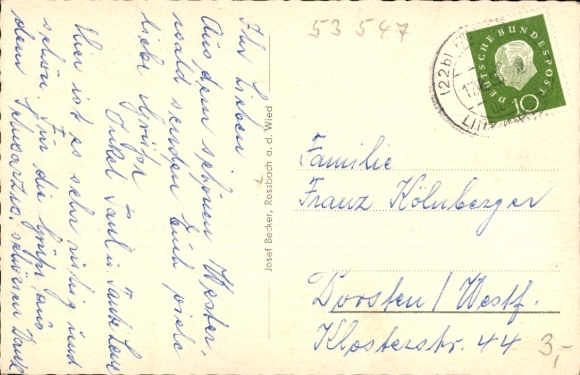 53547
Ihr Lieben
Aus dem schönen Wester-
wald senden Euch viele
liebe Grüße
Onkel Paul u. Tante
Hier ist es sehr ruhig und
schön. Für die Grüße aus
dem Schwarzw. schönen Dank
Josef Becker, Rossbach a. d. Wied
(22b)
DEUTSCHE BUNDESPOST
10
Familie
Franz Kölnberger
Dorsten/Westf.
Klosterstr. 44
3,-